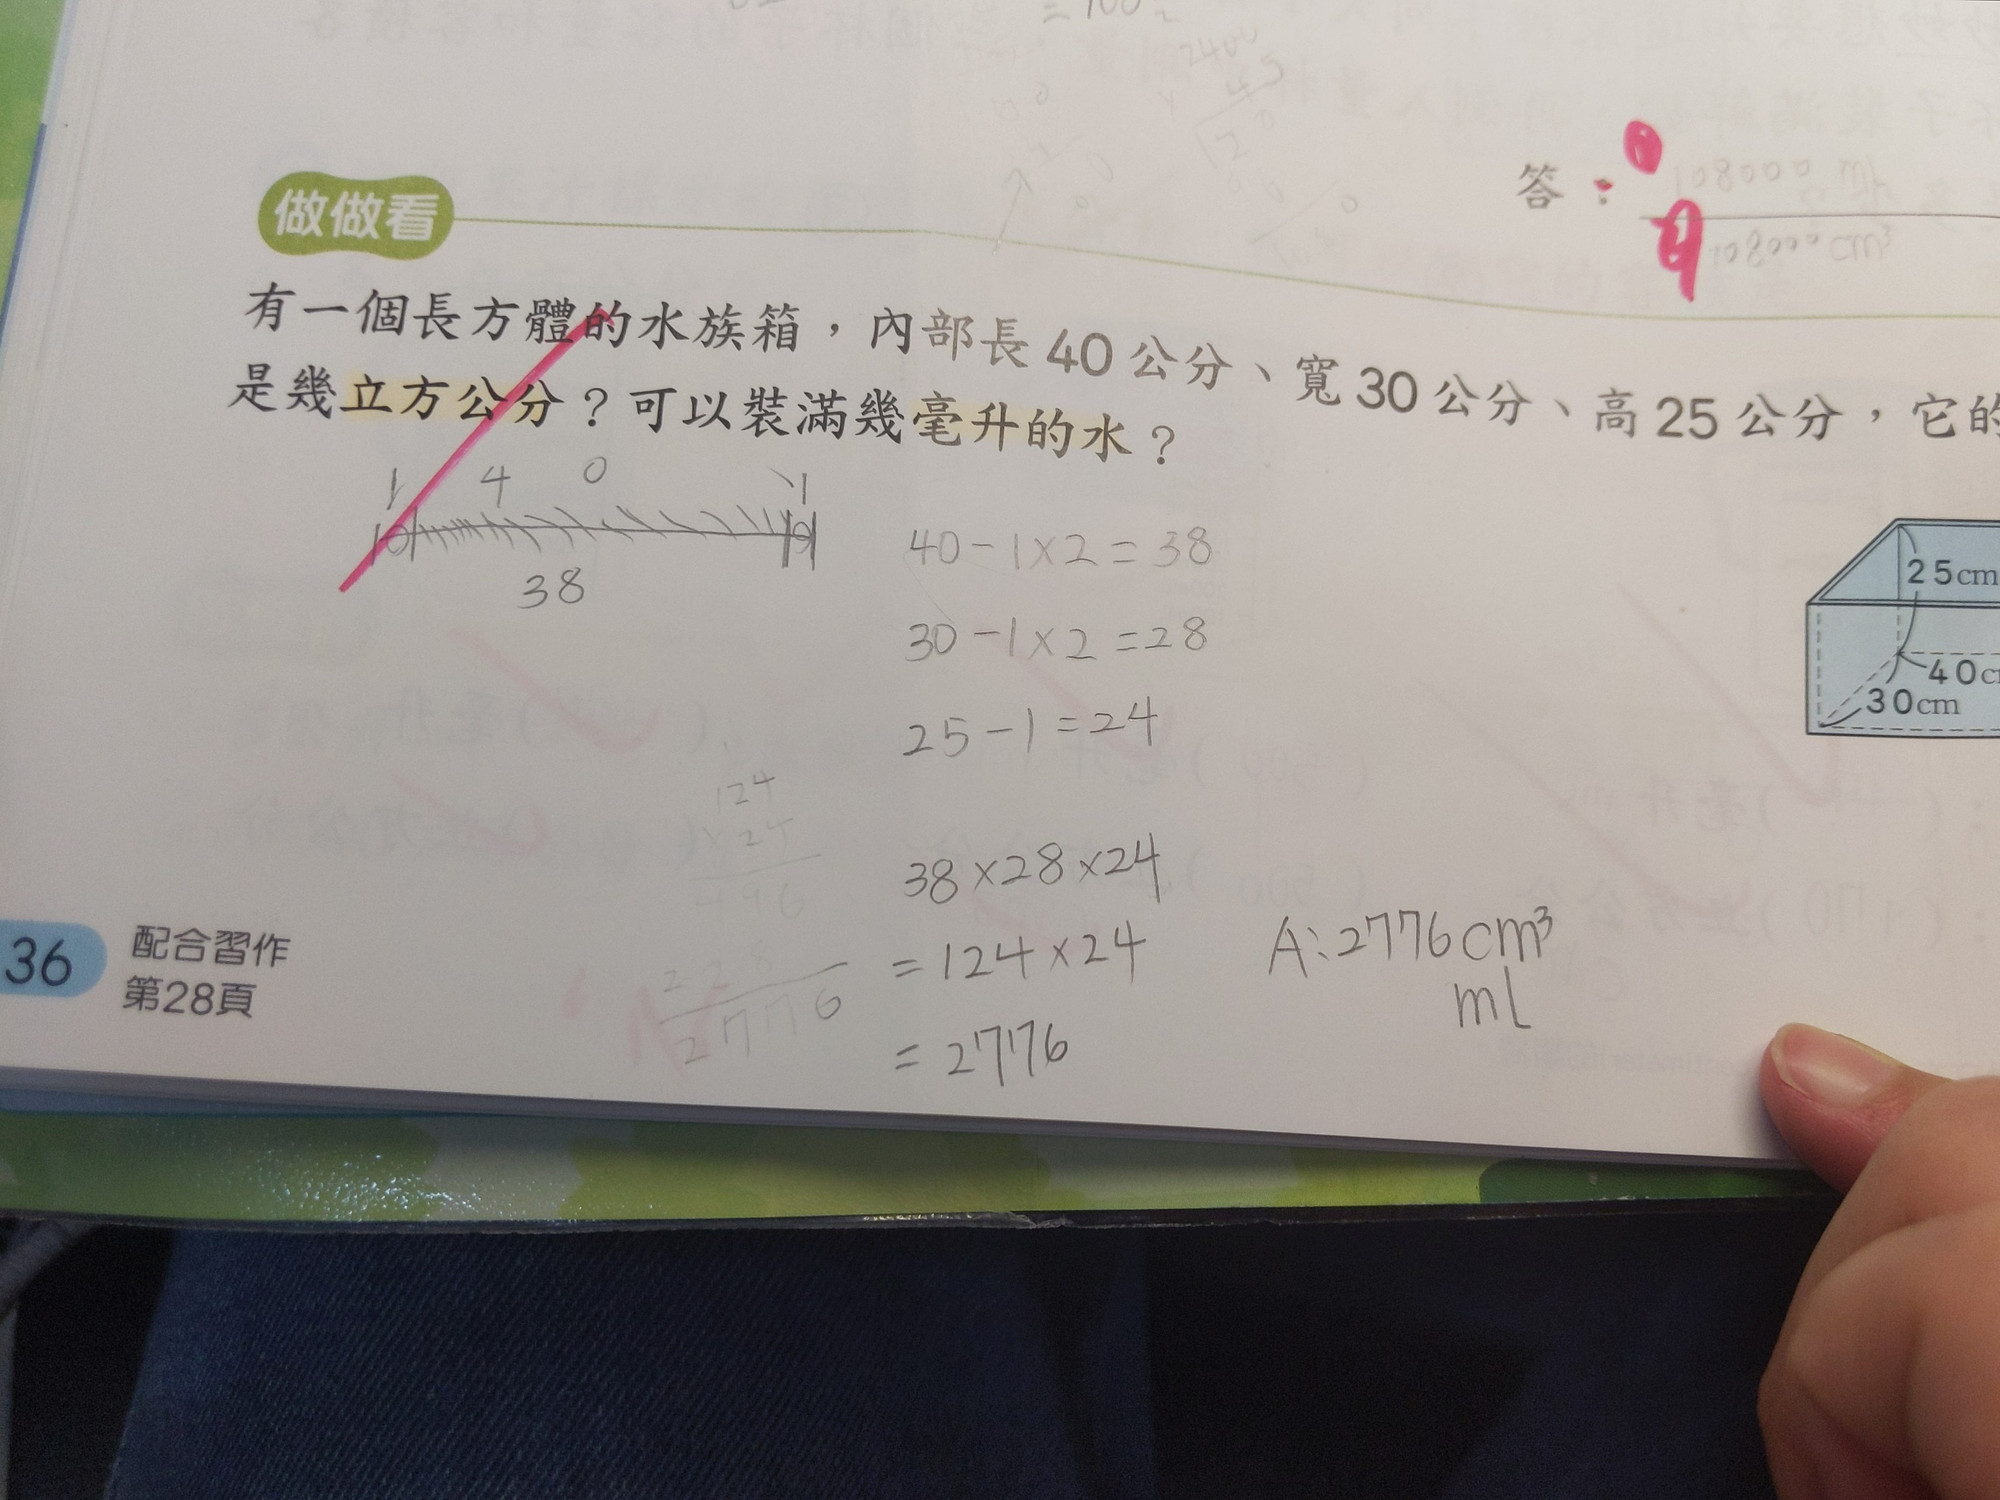 = 100
答：108000 ml
108000 cm³
做做看
有一個長方體的水族箱，內部長40公分、寬30公分、高25公分，它的
是幾立方公分？可以裝滿幾毫升的水？
1 4 0 1
38
40-1×2=38
30-1×2=28
25-1=24
25cm
40c
30cm
124
×24
496
2776
38×28×24
=124×24
=2776
A:2776cm³
ml
36
配合習作
第28頁